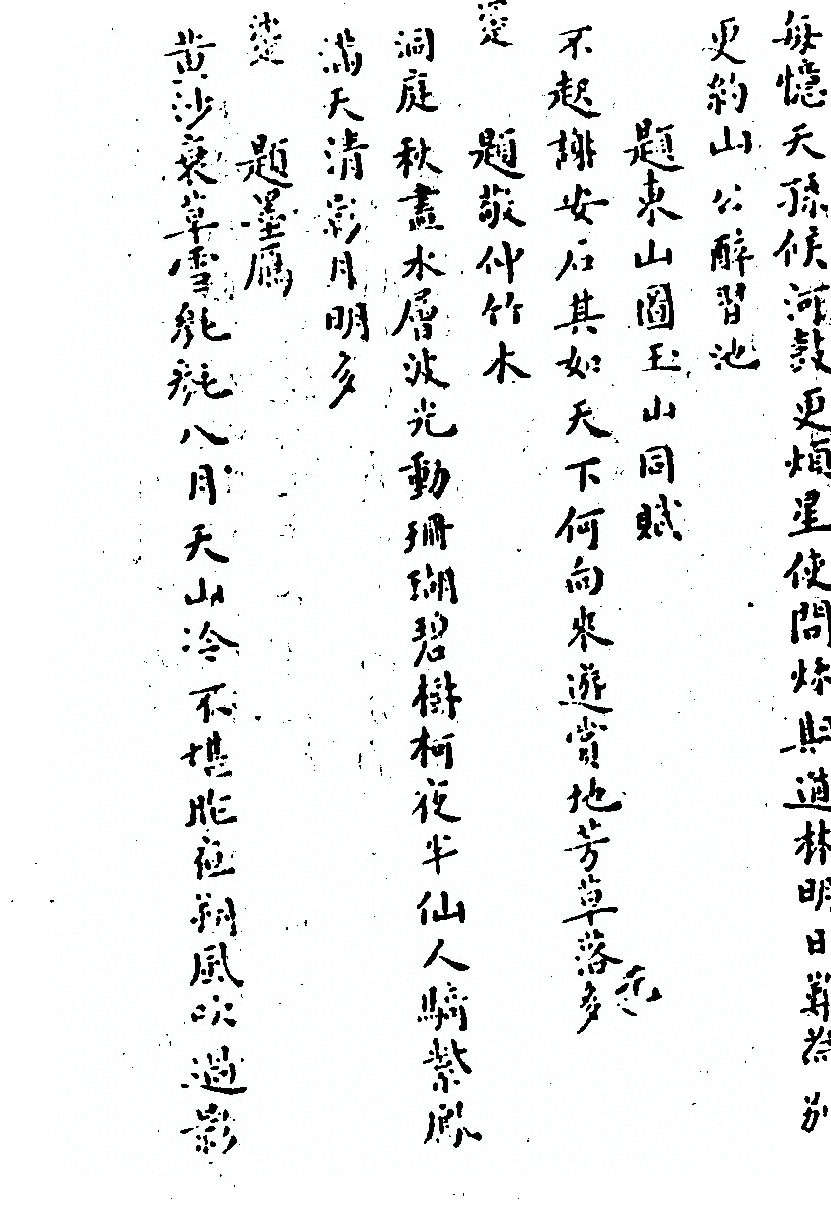 每憶天孫候河鼓更煩星使問
與道林明日
更約山公醉習池
題東山圖玉山同賦
不起謝安石其如天下何向來遊賞地芳草落多
題敬仲竹木
洞庭秋盡水層波光動珊瑚碧樹柯夜半仙人騎紫鳳
滿天清影月明多
題墨鴈
黄沙衰草雪毿毿八月天山冷不堪昨夜朔風吹過影